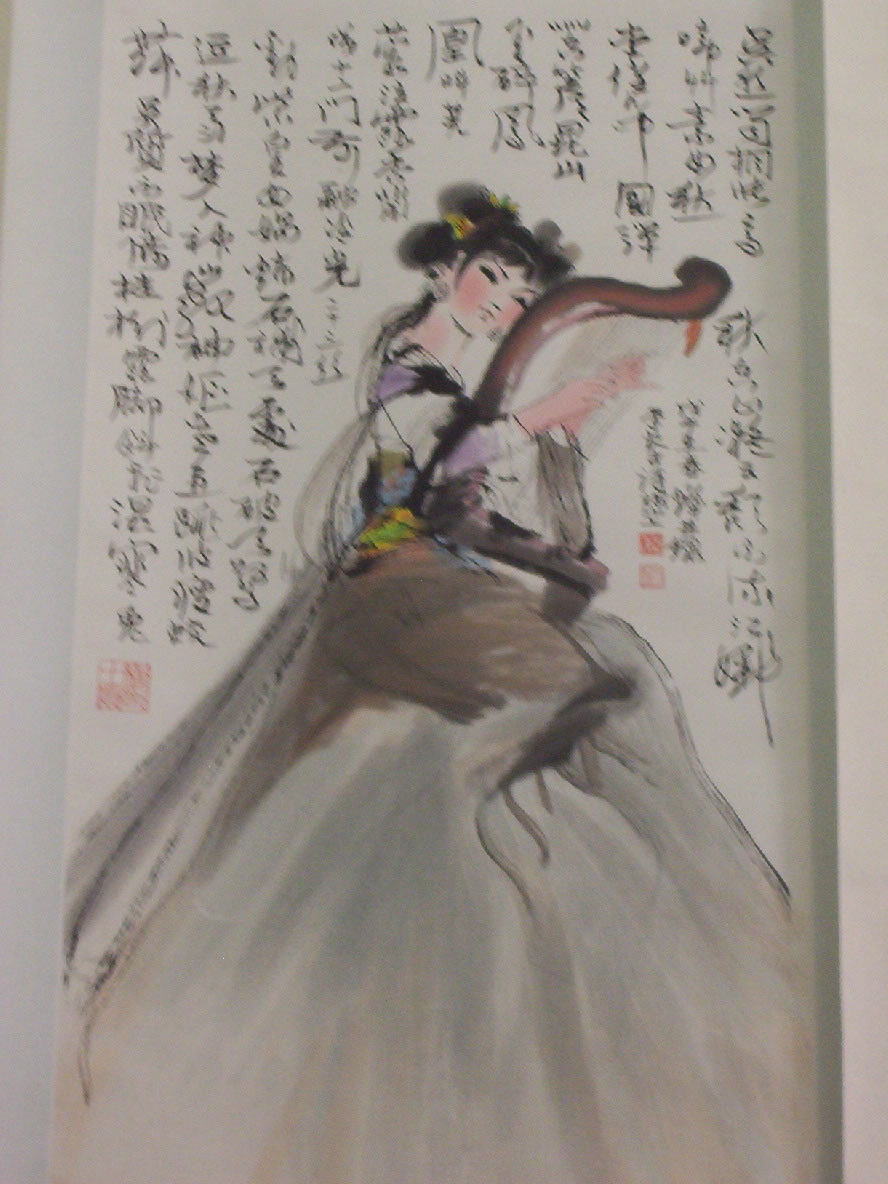 吴丝蜀桐張高
秋空山凝雲颓不流江娥
啼竹素女愁
李凭中國彈
箜篌崑山
玉碎鳳
凰叫芙
蓉泣露香蘭
笑十二门前融冷光二十三丝
動紫皇女媧鍊石補天處石破天驚
逗秋雨梦入神山教神妪老魚跳波瘦蛟
舞吴質不眠倚桂樹露脚斜飛濕寒兔